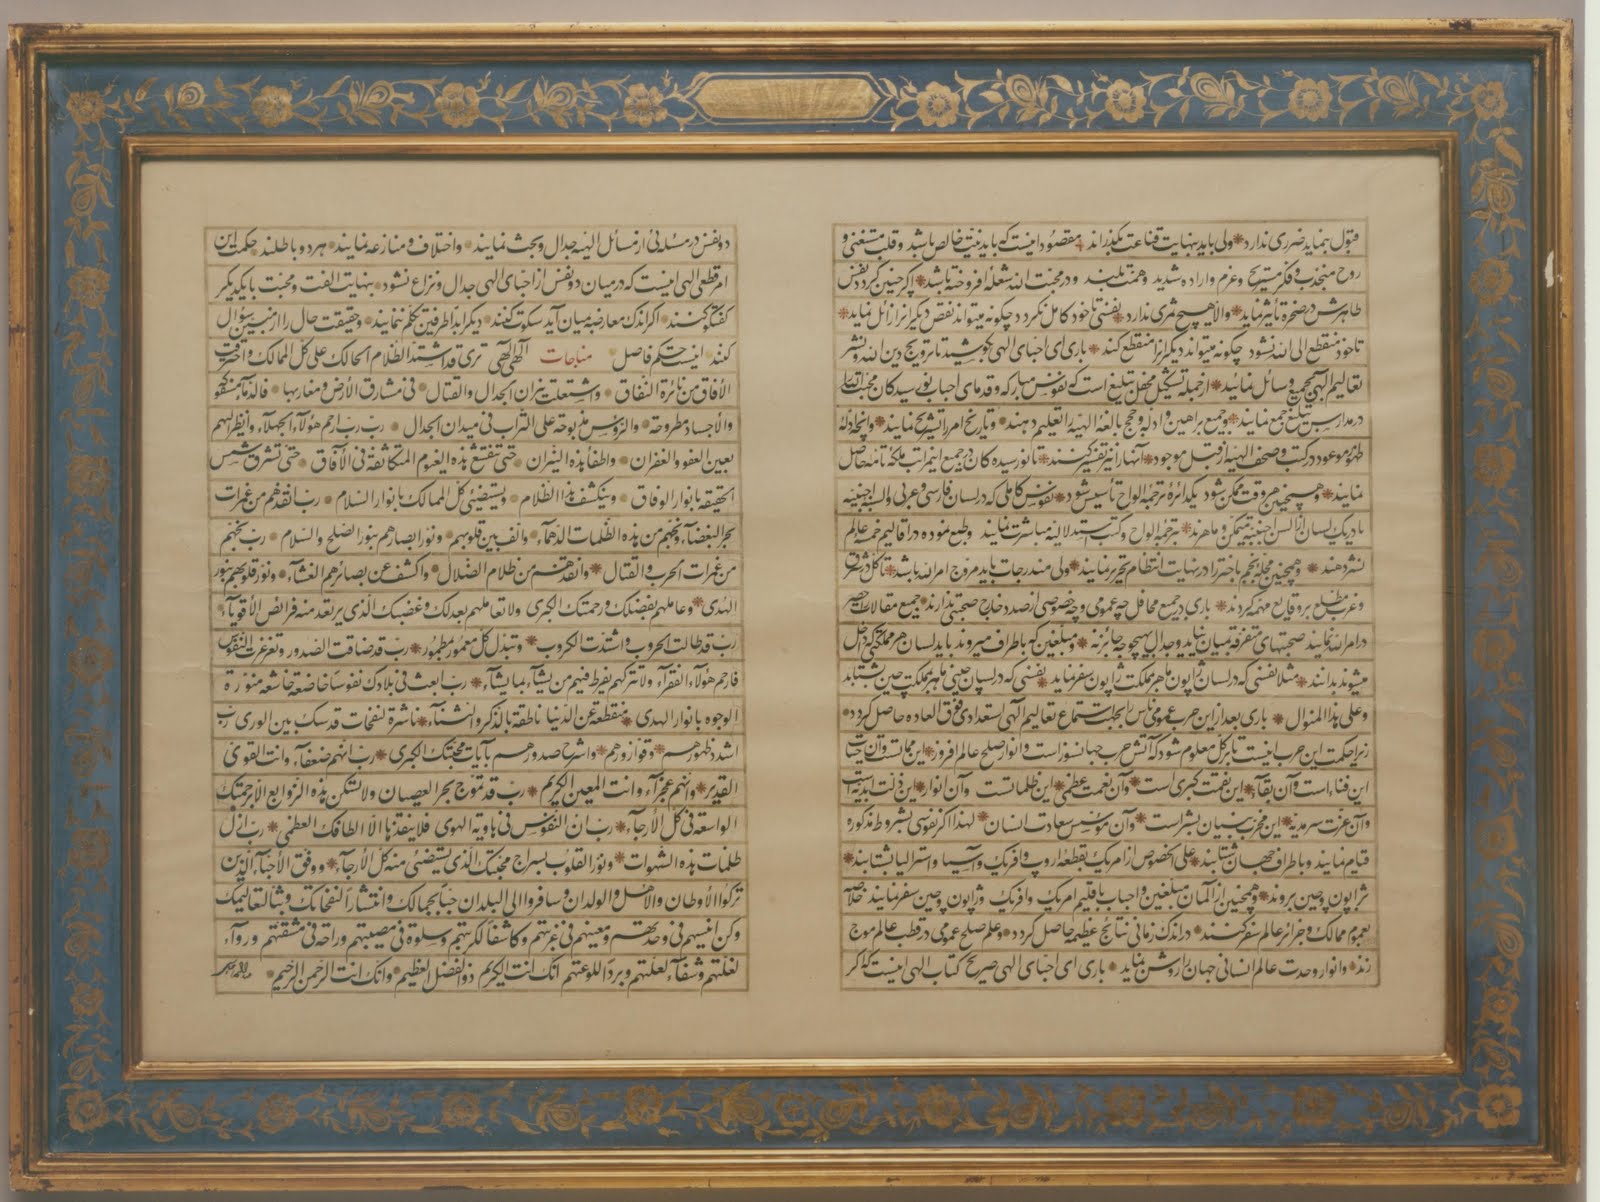 قبول بنماید ضرری ندارد ولی باید بنهایت قناعت بگذراند مقصود اینست که باید نیت خالص باشد و قلب مستغنی و
روح منجذب و فکر مستریح و عزم و اراده شدید و همت بلند و در محبت الله شعله افروخته باشد اگر چنین گردد نفس
طاهرش در صخره تأثیر نماید و الا هیچ ثمری ندارد نفسی تا خود کامل نگردد چگونه میتواند نقص دیگرانرا زائل نماید
تا خود منقطع الی الله نشود چگونه میتواند دیگرانرا منقطع کند باری ای احبای الهی بکوشید تا ترویج دین الله و نشر
تعالیم الهی بجمیع وسائل نمائید ازجمله تشکیل محفل تبلیغ است که نفوس مبارکه و قدمای احباب نورسیدگان محبت الله را
در مدارس تبلیغ جمع نمایند و جمیع براهین و ادله و حجج بالغه الهیه را تعلیم دهند و تاریخ امر را تشریح نمایند و آنچه ادله
ظهور موعود در کتب و صحف الهیه از قبل موجود آنها را نیز تفسیر کنند تا نورسیدگان در جمیع این مراتب ملکه تامه حاصل
نمایند و همچنین هر وقت ممکن شود یک دائره ترجمه الواح تأسیس شود نفوس کامل که در لسان فارسی و عربی و السن اجنبیه
یا در یک لسان از السن اجنبیه متمکن و ماهرند بترجمه الواح و کتب استدلالیه مباشرت نمایند و طبع نموده در اقالیم خمسه عالم
نشر دهند و همچنین مجله نجم باختر را در نهایت انتظام تحریر نمایند ولی مندرجات باید مروج امرالله باشد تا کل در شرق
و غرب مطلع بر وقایع مهمه گردند باری در جمیع محافل چه عمومی و چه خصوصی از صدد خارج صحبتی ندارند جمیع مقالات حصر
در امرالله نمایند صحبتهای متفرقه بمیان نیاید و جدال بهیچوجه جائز نه و مبلغین که باطراف میروند باید لسان هر مملکتی که داخل
میشوند بدانند مثلا نفسی که در لسان ژاپون ماهر بمملکت ژاپون سفر نماید نفسی که در لسان چینی ماهر بمملکت چین بشتابد
و علی هذا المنوال باری بعد از این حرب عمومی ناس را بجهت استماع تعالیم الهی استعدادی فوق العاده حاصل گردد
زیرا حکمت این حرب اینست تا بر کل معلوم شود که آتش حرب جهانسوز است و انوار صلح عالم افروز این مماتست و آن حیات
این فناء است و آن بقاء این نقمت کبری است و آن نعمت عظمی این ظلماتست و آن انوار این ذلت ابدیه است
و آن عزت سرمدیه این مخرب بنیان بشر است و آن مؤسس سعادت انسان لهذا اگر نفوسی بشروط مذکوره
قیام نمایند و باطراف جهان شتابند علی الخصوص از امریک بقطعه اروپ و افریک و آسیا و استرالیا بشتابند
ژاپون و چین بروند و همچنین از آلمان مبلغین و احباب باقلیم امریک و افریک و ژاپون و چین سفر نمایند خلاصه
بعموم ممالک و جزائر عالم سفر کنند در اندک زمانی نتائج عظیمه حاصل گردد و علم صلح عمومی در قطب عالم موج
زند و انوار وحدت عالم انسانی جهان را روشن نماید باری ای احبای الهی صریح کتاب الهی اینست که اگر
دو نفس در مسئله‌ئی از مسائل الهیه جدال و بحث نمایند و اختلاف و منازعه نمایند هر دو باطلند حکمت این
امر قطعی الهی اینست که در میان دو نفس از احبای الهی جدال و نزاع نشود بنهایت الفت و محبت با یکدیگر
گفتگو کنند اگر اندک معارضه بمیان آید سکوت کنند دیگر ابدا طرفین تکلم ننمایند و حقیقت حال را از مبین سؤال
کنند اینست حکم فاصل مناجات الهی الهی تری قد اشتد الظلام الحالک علی کل الممالک و احترقت
الآفاق من نائرة النفاق و اشتعلت نیران الجدال و القتال فی مشارق الأرض و مغاربها فالدماء مسفکو
و الأجساد مطروحة و الرؤس مذبوحة علی التراب فی میدان الجدال رب رب ارحم هؤلاء الجهلاء و انظر الیهم
بعین العفو و الغفران و اطف هذه النیران حتی تنقشع هذه الغیوم المتکاثفة فی الآفاق حتی تشرق شمس
الحقیقة بانوار الوفاق و ینکشف هذا الظلام و یستضیئ کل الممالک بانوار السلام رب انقذهم من غمرات
بحر البغضاء و نجهم من هذه الظلمات الدهماء و الف بین قلوبهم و نور ابصارهم بنور الصلح و السلام رب نجهم
من غمرات الحرب و القتال و انقذهم من ظلام الضلال و اکشف عن بصائرهم الغشاء و نور قلوبهم بنور
الهدی و عاملهم بفضلک و رحمتک الکبری و لا تعاملهم بعدلک و غضبک الذی یرتعد منه فرائص الأقویاء
رب قد طالت الحروب و اشتدت الکروب و تبدل کل معمور بمطمور رب قد ضاقت الصدور و تغرغرت النفوس
فارحم هؤلاء الفقراء و لا تترکهم یفرط فیهم من یشاء بما یشاء رب ابعث فی بلادک نفوسا خاضعة خاشعة منورة
الوجوه بانوار الهدی منقطعة عن الدنیا ناطقة بالذکر و الثناء ناشرة لنفحات قدسک بین الوری رب
اشدد ظهورهم و قو ازورهم و اشرح صدورهم بآیات محبتک الکبری رب انهم ضعفاء و انت القوی
القدیر و انهم عجزاء و انت المعین الکریم رب قد تموج بحر العصیان و لا تسکن هذه الزوابع الا برحمتک
الواسعة فی کل الأرجاء رب ان النفوس فی هاویة الهوی فلا ینقذها الا الطافک العظمی رب ازل
ظلمات هذه الشهوات و نور القلوب بسراج محبتک الذی یستضیئ منه کل الأرجاء و وفق الأحباء الذین
ترکوا الأوطان و الأهل و الولدان و سافروا الی البلدان حبا بجمالک و انتشارا لنفحاتک و بثا لتعالیمک
و کن انیسهم فی وحدتهم و معینهم فی غربتهم و کاشفا لکربتهم و سلوة فی مصیبتهم و راحة فی مشقتهم و رواء
لغلتهم و شفاء لعلتهم و بردا للوعتهم انک انت الکریم ذو الفضل العظیم و انک انت الرحمن الرحیم